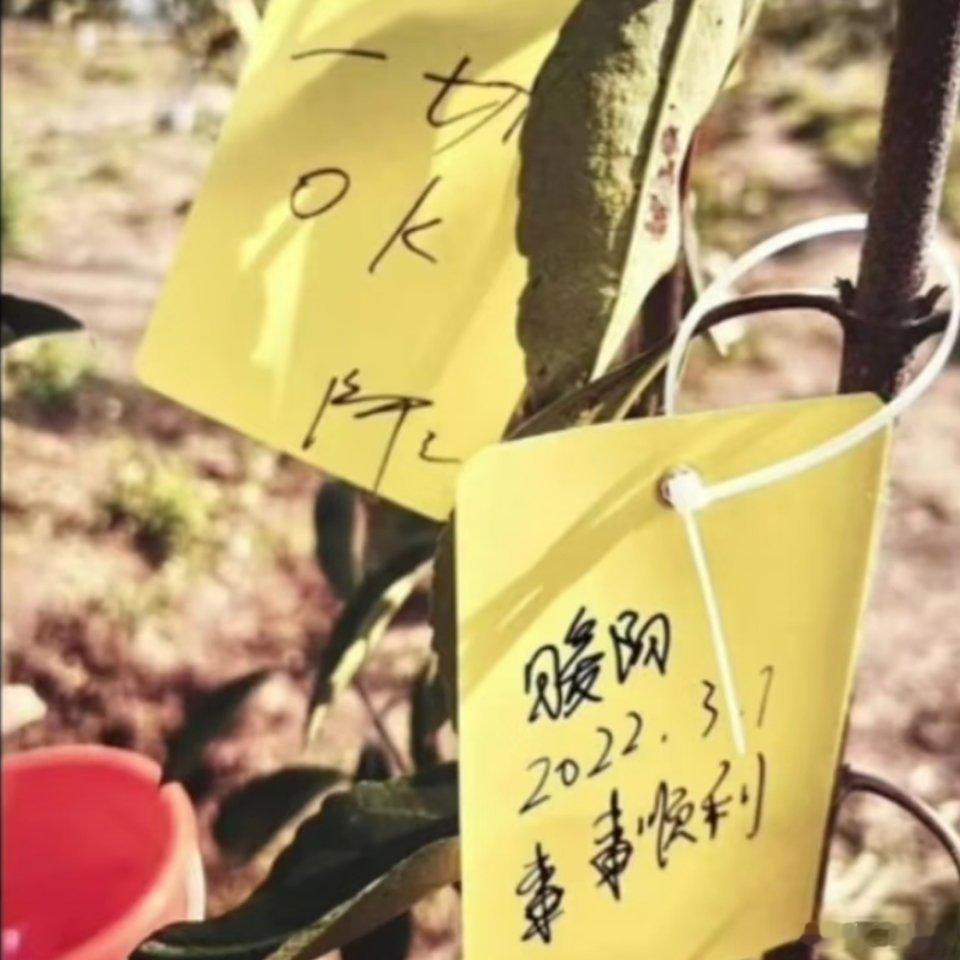 一切
OK
暖阳
2022.3.1
事事顺利